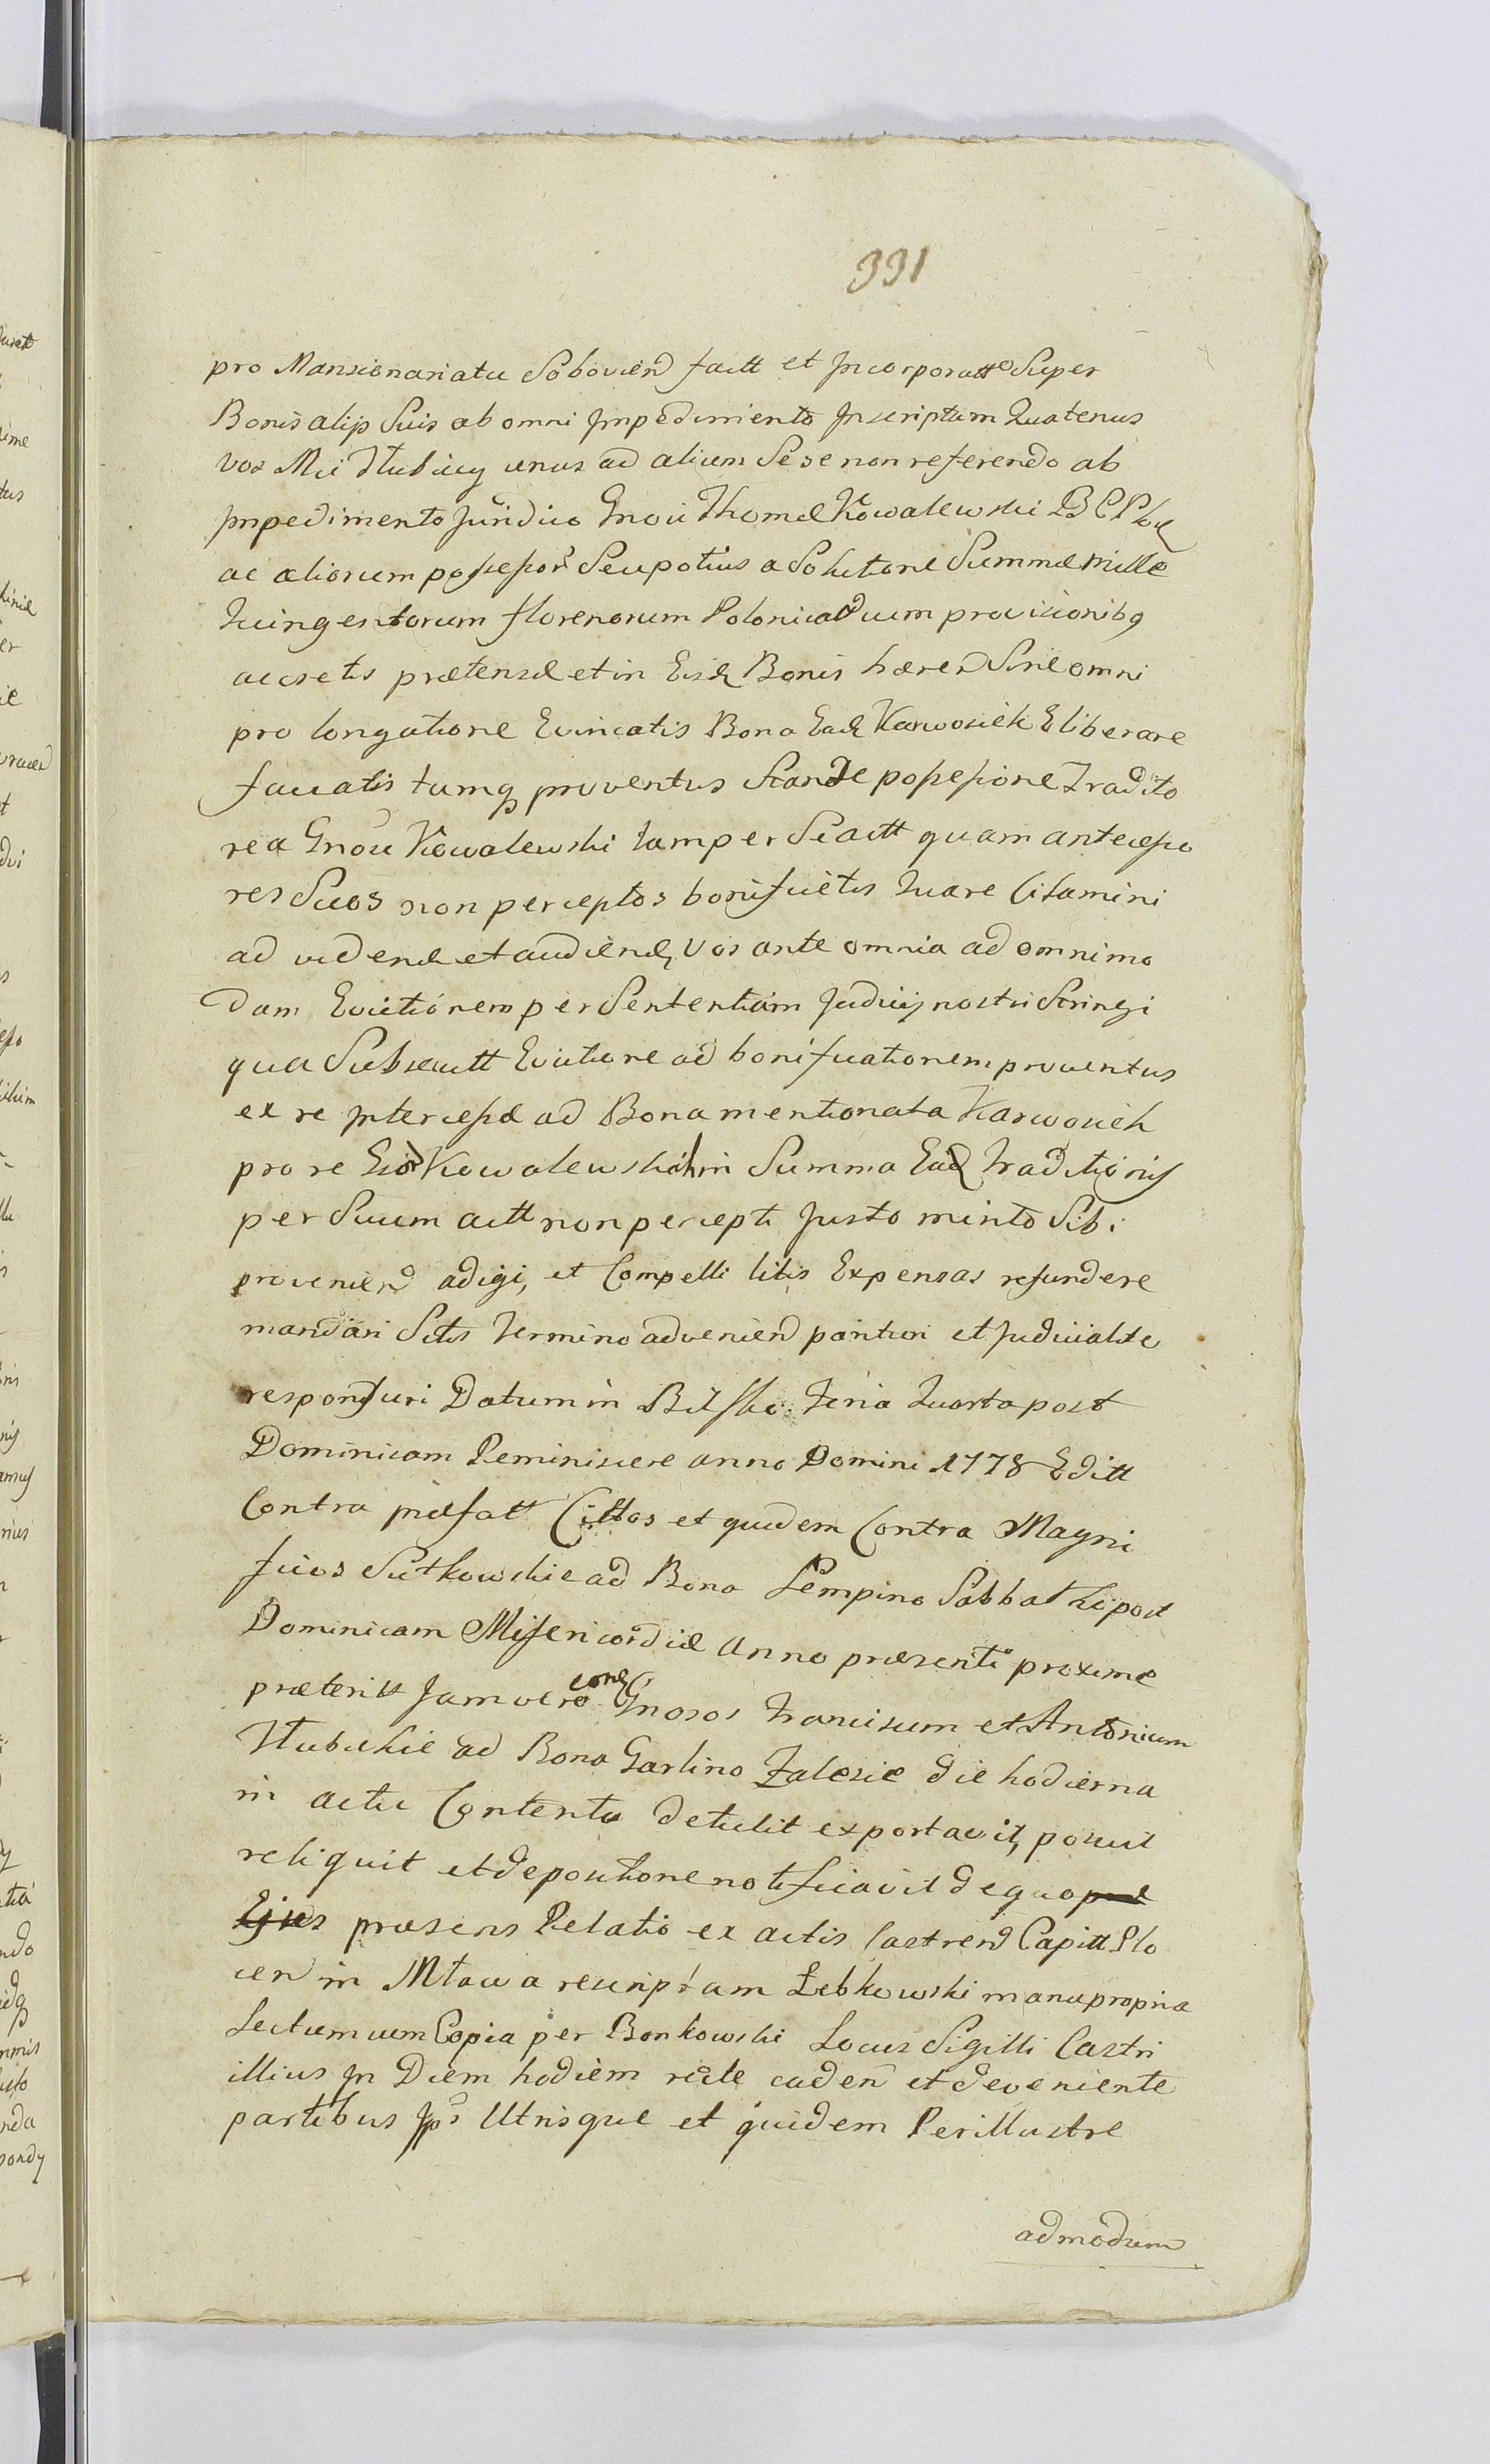 331
pro Mansionariatu Sobovien factt et Incorporatto Super
Bonis alijs Suis ab omni Impedimento Inscriptum Quatenus
vos Mci Hubicy unus ad alium Sese non referendo ab
Impedimento Juridico Gnosi Thomæ Kowalewski B C Ploc
ac aliorum possessor Seu potius a Solutione Summæ Mille
Quingentorum florenorum Polonical cum provisionibq
accretis prætensæ et in Eisd Bonis hæren Sine omni
pro longatione Evincatis Bona Ead Karwosieki Eliberare
faciatis tumq proventus Stande possessione Tradito
rea Gnosi Kowalewski tam per Se actt quam antecesso
res Suos non perceptos bonificetis Quare Citamini
ad vidend et audiend, Vos ante omnia ad omnimo
dam Evictionem per Sententiam Judicij nostri Stringi
qua Subsecutt Evictione ad bonificationem proventus
ex re Intercessæ ad Bona mentionata Karwosieki
pro re Kowalewski in Summa Ead Traditionis
per Suum actt non percepti Justo minto Sibi
provenien adigi, et Compelli litis Expensas refundere
mandari Sitis Termino advenien parituri et Judicialite
responsuri Datum in Bilsko Feria Quarta post
Dominicam Reminiscere anno Domini 1778 Editt
Contra præfatt Cittos et quidem Contra Magni
ficos Sutkowskie ad Bona Lempino Sabbatho post
Dominicam Misericordiæ anno præsenti proxime
præteritt Jam vero cont Gnosos Franciscum et Antonium
Hubickie ad Bona Garlino Zalesie die hodierna
in actu Contenta detulit exportavit, posuit
reliquit et depositione notificavit de quo præ
Ejus præsens Relatio ex actis Castren Capitt Plo
cen in Mława rescriptam Łebkowski manu propria
Lectum cum Copia per Bonkowski Locus Sigilli Castri
illius In Diem hodiern recte caden et deveniente
partibus Ips Utrisque et quidem Perillustre
admodum